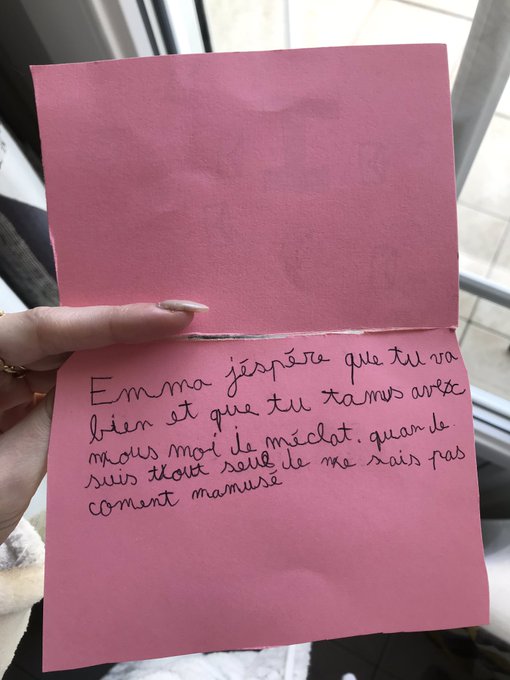 Emma jéspére que tu va
bien et que tu tamus avec
nous moi je méclat. quan je
suis thout seul je ne sais pas
coment mamusé